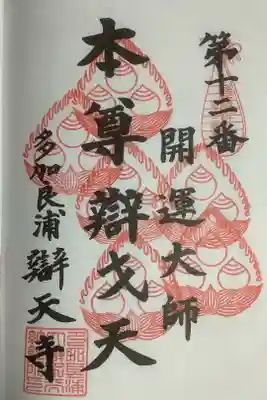 第十二番
開運大師
本尊辯戈天
多加良浦辯天寺